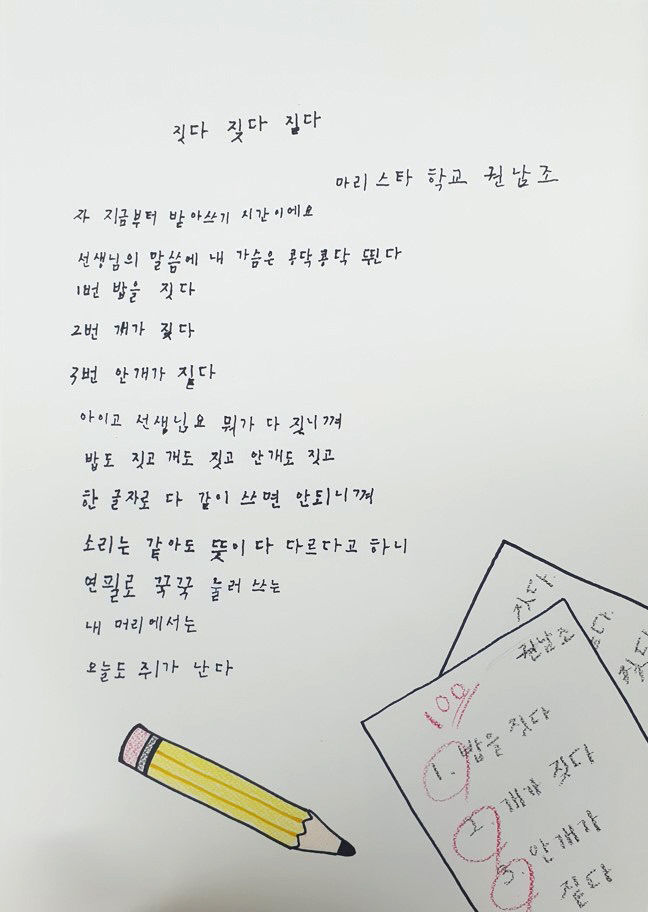 짓다 짖다 짙다
마리스타 학교 권남조
자 지금부터 받아쓰기 시간이에요
선생님의 말씀에 내 가슴은 콩닥콩닥 뛴다
1번 밥을 짓다
2번 개가 짖다
3번 안개가 짙다
아이고 선생님요 뭐가 다 짓니껴
밥도 짓고 개도 짓고 안개도 짓고
한 글자로 다 같이 쓰면 안되니껴
소리는 같아도 뜻이 다 다르다고 하니
연필로 꾹꾹 눌러 쓰는
내 머리에서는
오늘도 쥐가 난다
짓다.
권남조
100
1. 밥을 짓다
2. 개가 짖다
3. 안개가
짙다